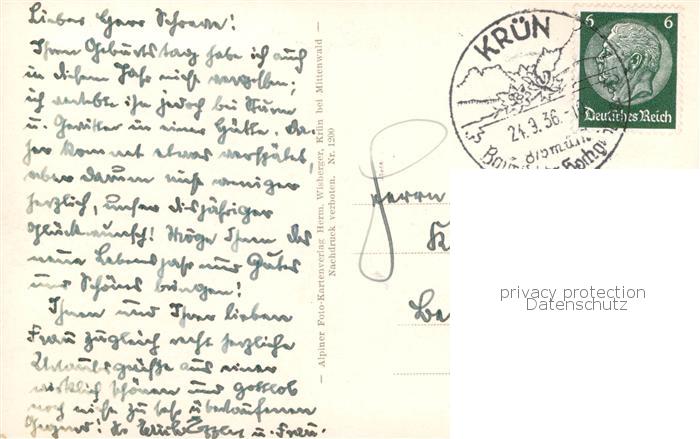 Lieber Herr
Ihren Geburtstag habe ich auch
in diesem Jahr nicht vergessen;
ich verlebte ihn jedoch bei Sturm
u. Gewitter in einer Hütte. Da-
her kommt etwas verspätet,
aber darum nicht weniger
herzlich, unser diesjähriger
Glückwunsch! Möge Ihnen das
neue Lebensjahr nur Gutes
und Schönes bringen!
Ihnen und Ihrer lieben
Frau zugleich recht herzliche
Urlaubsgrüße aus einer
wirklich schönen und gottlob
noch nicht zu sehr überlaufenen
Gegend! Ihr u. Frau.
— Alpiner Foto-Kartenverlag Herm. Wisberger, Krün bei Mittenwald —
Nachdruck verboten. Nr. 1200
KRÜN
24.9.36.
6 6
Deutsches Reich
Herrn
K
Be
privacy protection
Datenschutz